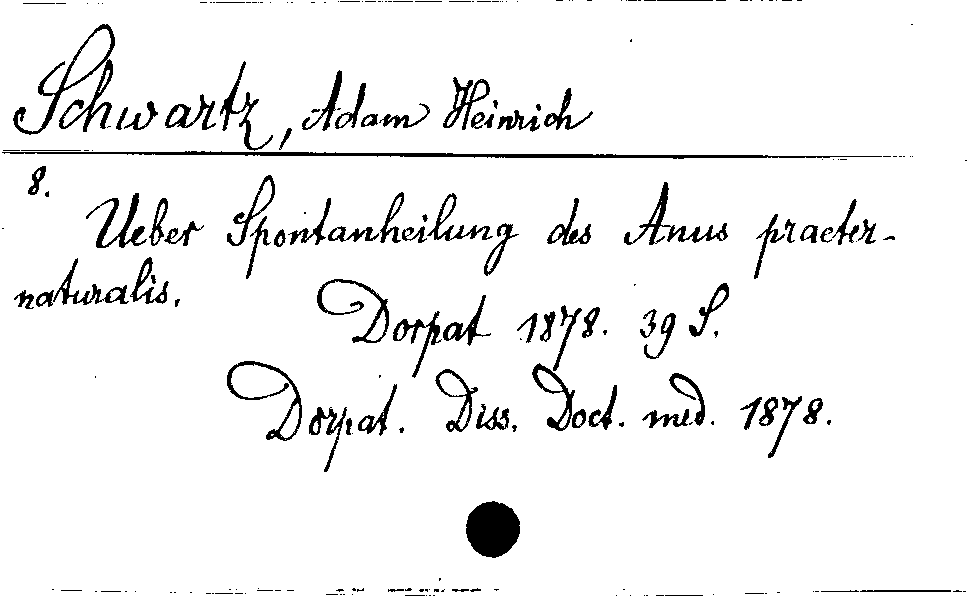 Schwartz, Adam Heinrich
8.
Ueber Spontanheilung des Anus praeter-
naturalis.
Dorpat 1878. 39 S.
Dorpat. Diss. Doct. med. 1878.